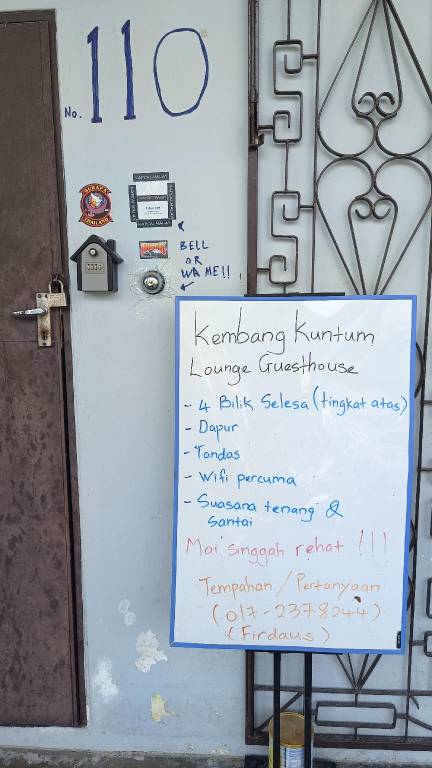 No. 110
BELL
OR
WA ME!!
Kembang Kuntum
Lounge Guesthouse
- 4 Bilik Selesa (tingkat atas)
- Dapur
- Tandas
- Wifi percuma
- Suasana tenang &
santai
Mai singgah rehat !!!
Tempahan / Pertanyaan
(017-2378244)
(Firdaus)